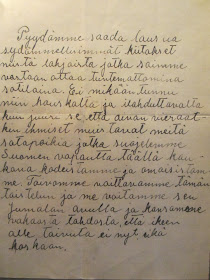 Pyydämme saada lausua
sydämmellisimmät kiitokset
niistä lahjoista jotka saimme
vastaan ottaa tuntemattomina
sotilaina. Ei mikään tunnu
niin hauskalta ja ilahduttavalta
kun juuri se että aivan vieraat-
kin ihmiset muistavat meitä
sotapoikia jotka suojelemme
Suomen vapautta täällä kau-
kana kodeistamme ja omaisistam-
me. Toivomme voittavamme tämän
taistelun ja me voitamme sen
jumalan avulla ja kansamme
vakaasta tahdosta, että ikeen
alle taivuta ei nyt eikä
koskaan.